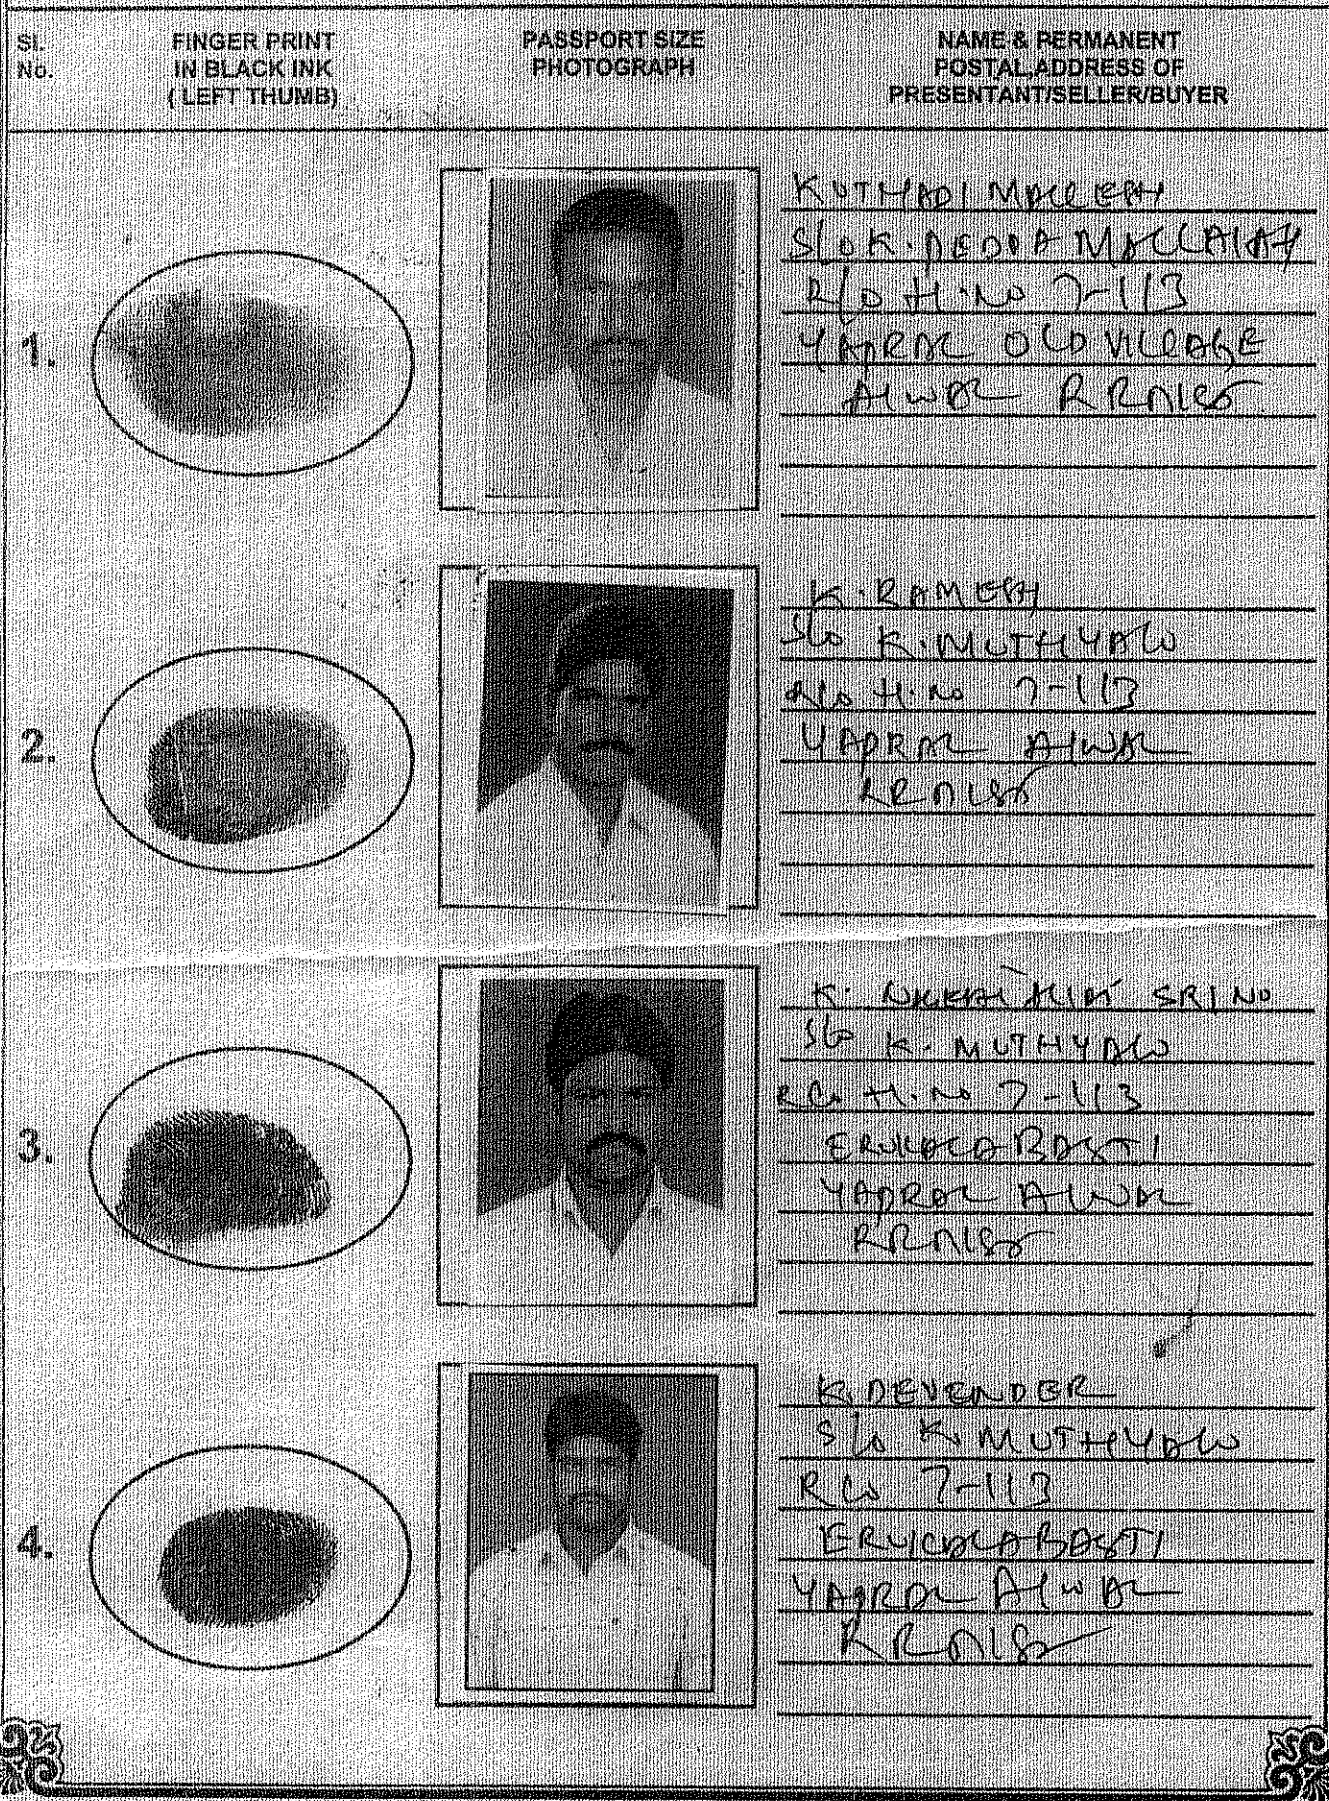 Sl.
No.
FINGER PRINT
IN BLACK INK
( LEFT THUMB)
PASSPORT SIZE
PHOTOGRAPH
NAME & PERMANENT
POSTAL,ADDRESS OF
PRESENTANT/SELLER/BUYER
1.
KUTHADI MALLESH
S/o K. PEDDA MALLAIAH
R/o H.No 7-113
YAPRAL OLD VILLAGE
ALWAL RR DIST
2.
K. RAMESH
S/o K. MUTHYALU
R/o H.No 7-113
YAPRAL ALWAL
RR DIST
3.
K. SRINO
S/o K. MUTHYALU
R/o H.No 7-113
ERUKALA BASTI
YAPRAL ALWAL
RR DIST
4.
K. DEVENDER
S/o K. MUTHYALU
R/o 7-113
ERUKALA BASTI
YAPRAL ALWAL
RR DIST